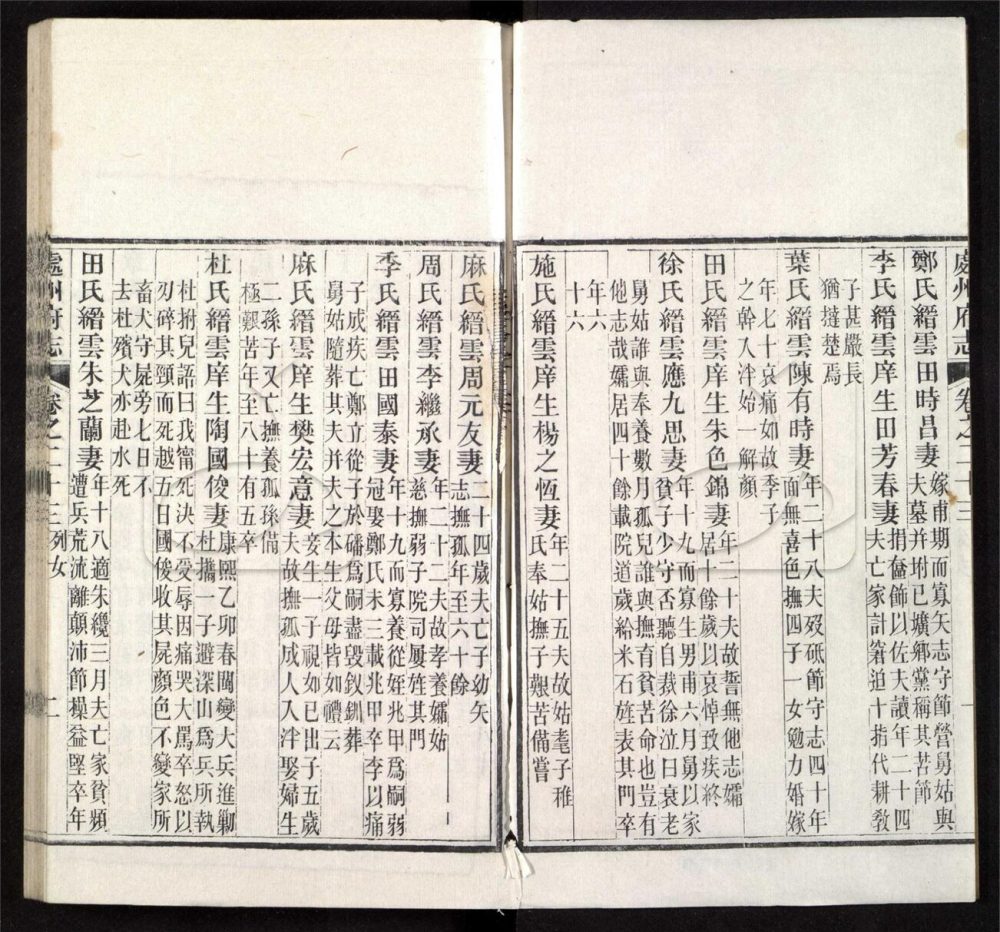 處州府志 卷之二十三
鄭氏縉雲田時昌妻
嫁甫期而寡矢志守節營舅姑與
夫墓并坿已壙鄉黨稱其苦節
李氏縉雲庠生田芳春妻
捐奩飾以佐夫讀年二十四
夫亡家計窘迫十指代耕敎
子甚嚴長
猶撻楚焉
葉氏縉雲陳有時妻
年二十八夫歿砥節守志四十年
面無喜色撫四子一女勉力婚嫁
年七十哀痛如故季子
之幹入泮始一解顏
田氏縉雲庠生朱色錦妻
年二十夫故誓無他志孀
居十餘歲以哀悼致疾終
徐氏縉雲應九思妻
年十九而寡生男甫六月舅以家
貧子少守否聽自裁徐泣曰衰老
舅姑誰與奉養數月孤兒誰與撫育貧苦命也豈有
他志哉孀居四十餘載院道歲給米石旌表其門卒
年六
十六
施氏縉雲庠生楊之恆妻
年二十五夫故姑耄子稚
氏奉姑撫子艱苦備嘗
麻氏縉雲周元友妻
二十四歲夫亡子幼矢
志撫孤年至六十餘
周氏縉雲李繼承妻
年二十二夫故孝養孀姑
慈撫弱子院司屢旌其門
季氏縉雲田國泰妻
年十九而寡養從姪兆甲爲嗣弱
冠娶鄭氏未三載兆甲卒李以痛
子成疾亡鄭立從子於磻爲嗣盡毀釵釧葬
舅姑隨葬其夫并夫之本生父母皆如禮云
麻氏縉雲庠生樊宏意妻
妾生一子視如已出子五歲
夫故撫孤成人入泮娶婦生
二孫子又亡撫養孤孫備
極艱苦年至八十有五卒
杜氏縉雲庠生陶國俊妻
康熙乙卯春閩變大兵進剿
杜攜一子避深山爲兵所執
杜拊兒語曰我甯死決不受辱因痛哭大罵卒怒以
刃碎其頸而死越五日國俊收其屍顏色不變家所
畜犬守屍旁七日不
去杜殯犬亦赴水死
田氏縉雲朱芝蘭妻
年十八適朱纔三月夫亡家貧頻
遭兵荒流離顛沛節操益堅卒年
處州府志 卷之二十三 列女 二